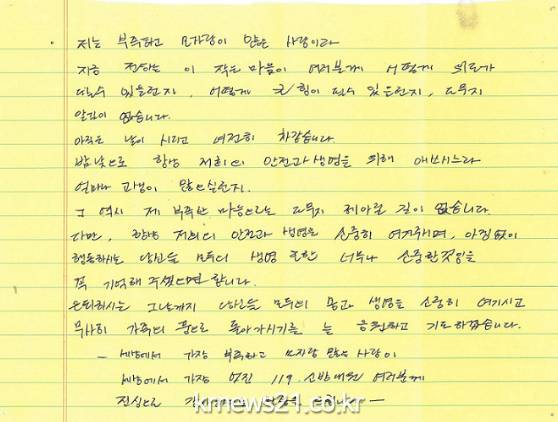 저는 부족하고 모자람이 많은 사람이라
지금 전하는 이 작은 마음이 여러분께 어떻게 위로가
되는수 있을런지, 어떻게 큰 힘이 될수 있을런지, 도무지
알길이 없습니다.
아직은 날이 시리고 여전히 차갑습니다.
밤낮으로 항상 저희의 안전과 생명을 위해 애쓰시느라
얼마나 고생이 많으실런지.
그 역시 제 부족한 마음으로는 도무지 헤아릴 길이 없습니다.
다만, 항상 저희의 안전과 생명을 소중히 여겨주시며, 아낌없이
행동하시는 당신들 모두의 생명 또한 너무나 소중한것임을
꼭 기억해 주셨으면 합니다.
은퇴하시는 그날까지 당신들 모두의 몸과 생명을 소중히 여기시고
무사히 가족의 품으로 돌아가시기를 늘 응원하고 기도하겠습니다.
- 세상에서 가장 부족하고 모자람 많은 사람이
세상에서 가장 멋진 119 소방대원 여러분께
진심으로
krnews21.co.kr